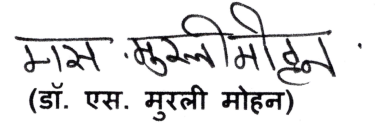 एस. मुरली मोहन
(डॉ. एस. मुरली मोहन)